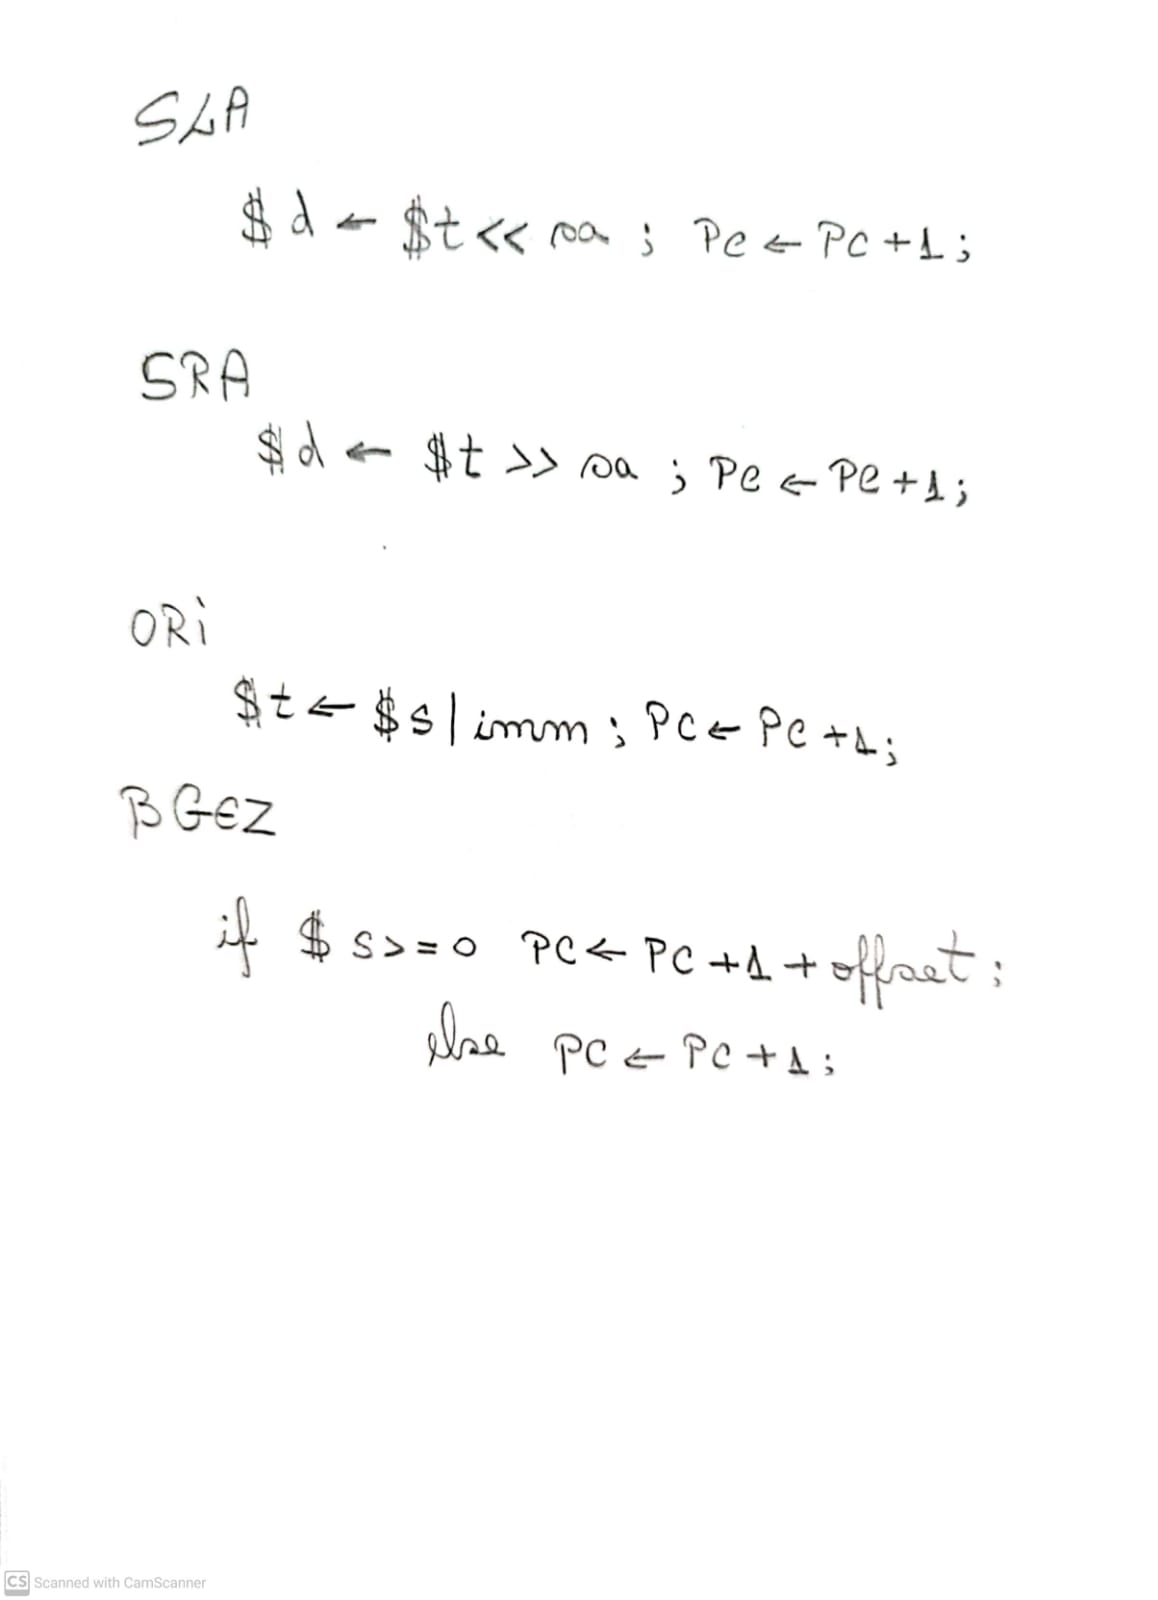 SLA
$d ← $t << sa ; PC ← PC + 1 ;
SRA
$d ← $t >> sa ; PC ← PC + 1 ;
ORi
$t ← $s | imm ; PC ← PC + 1 ;
BGEZ
if $s >= 0 PC ← PC + 1 + offset ;
else PC ← PC + 1 ;
CS Scanned with CamScanner